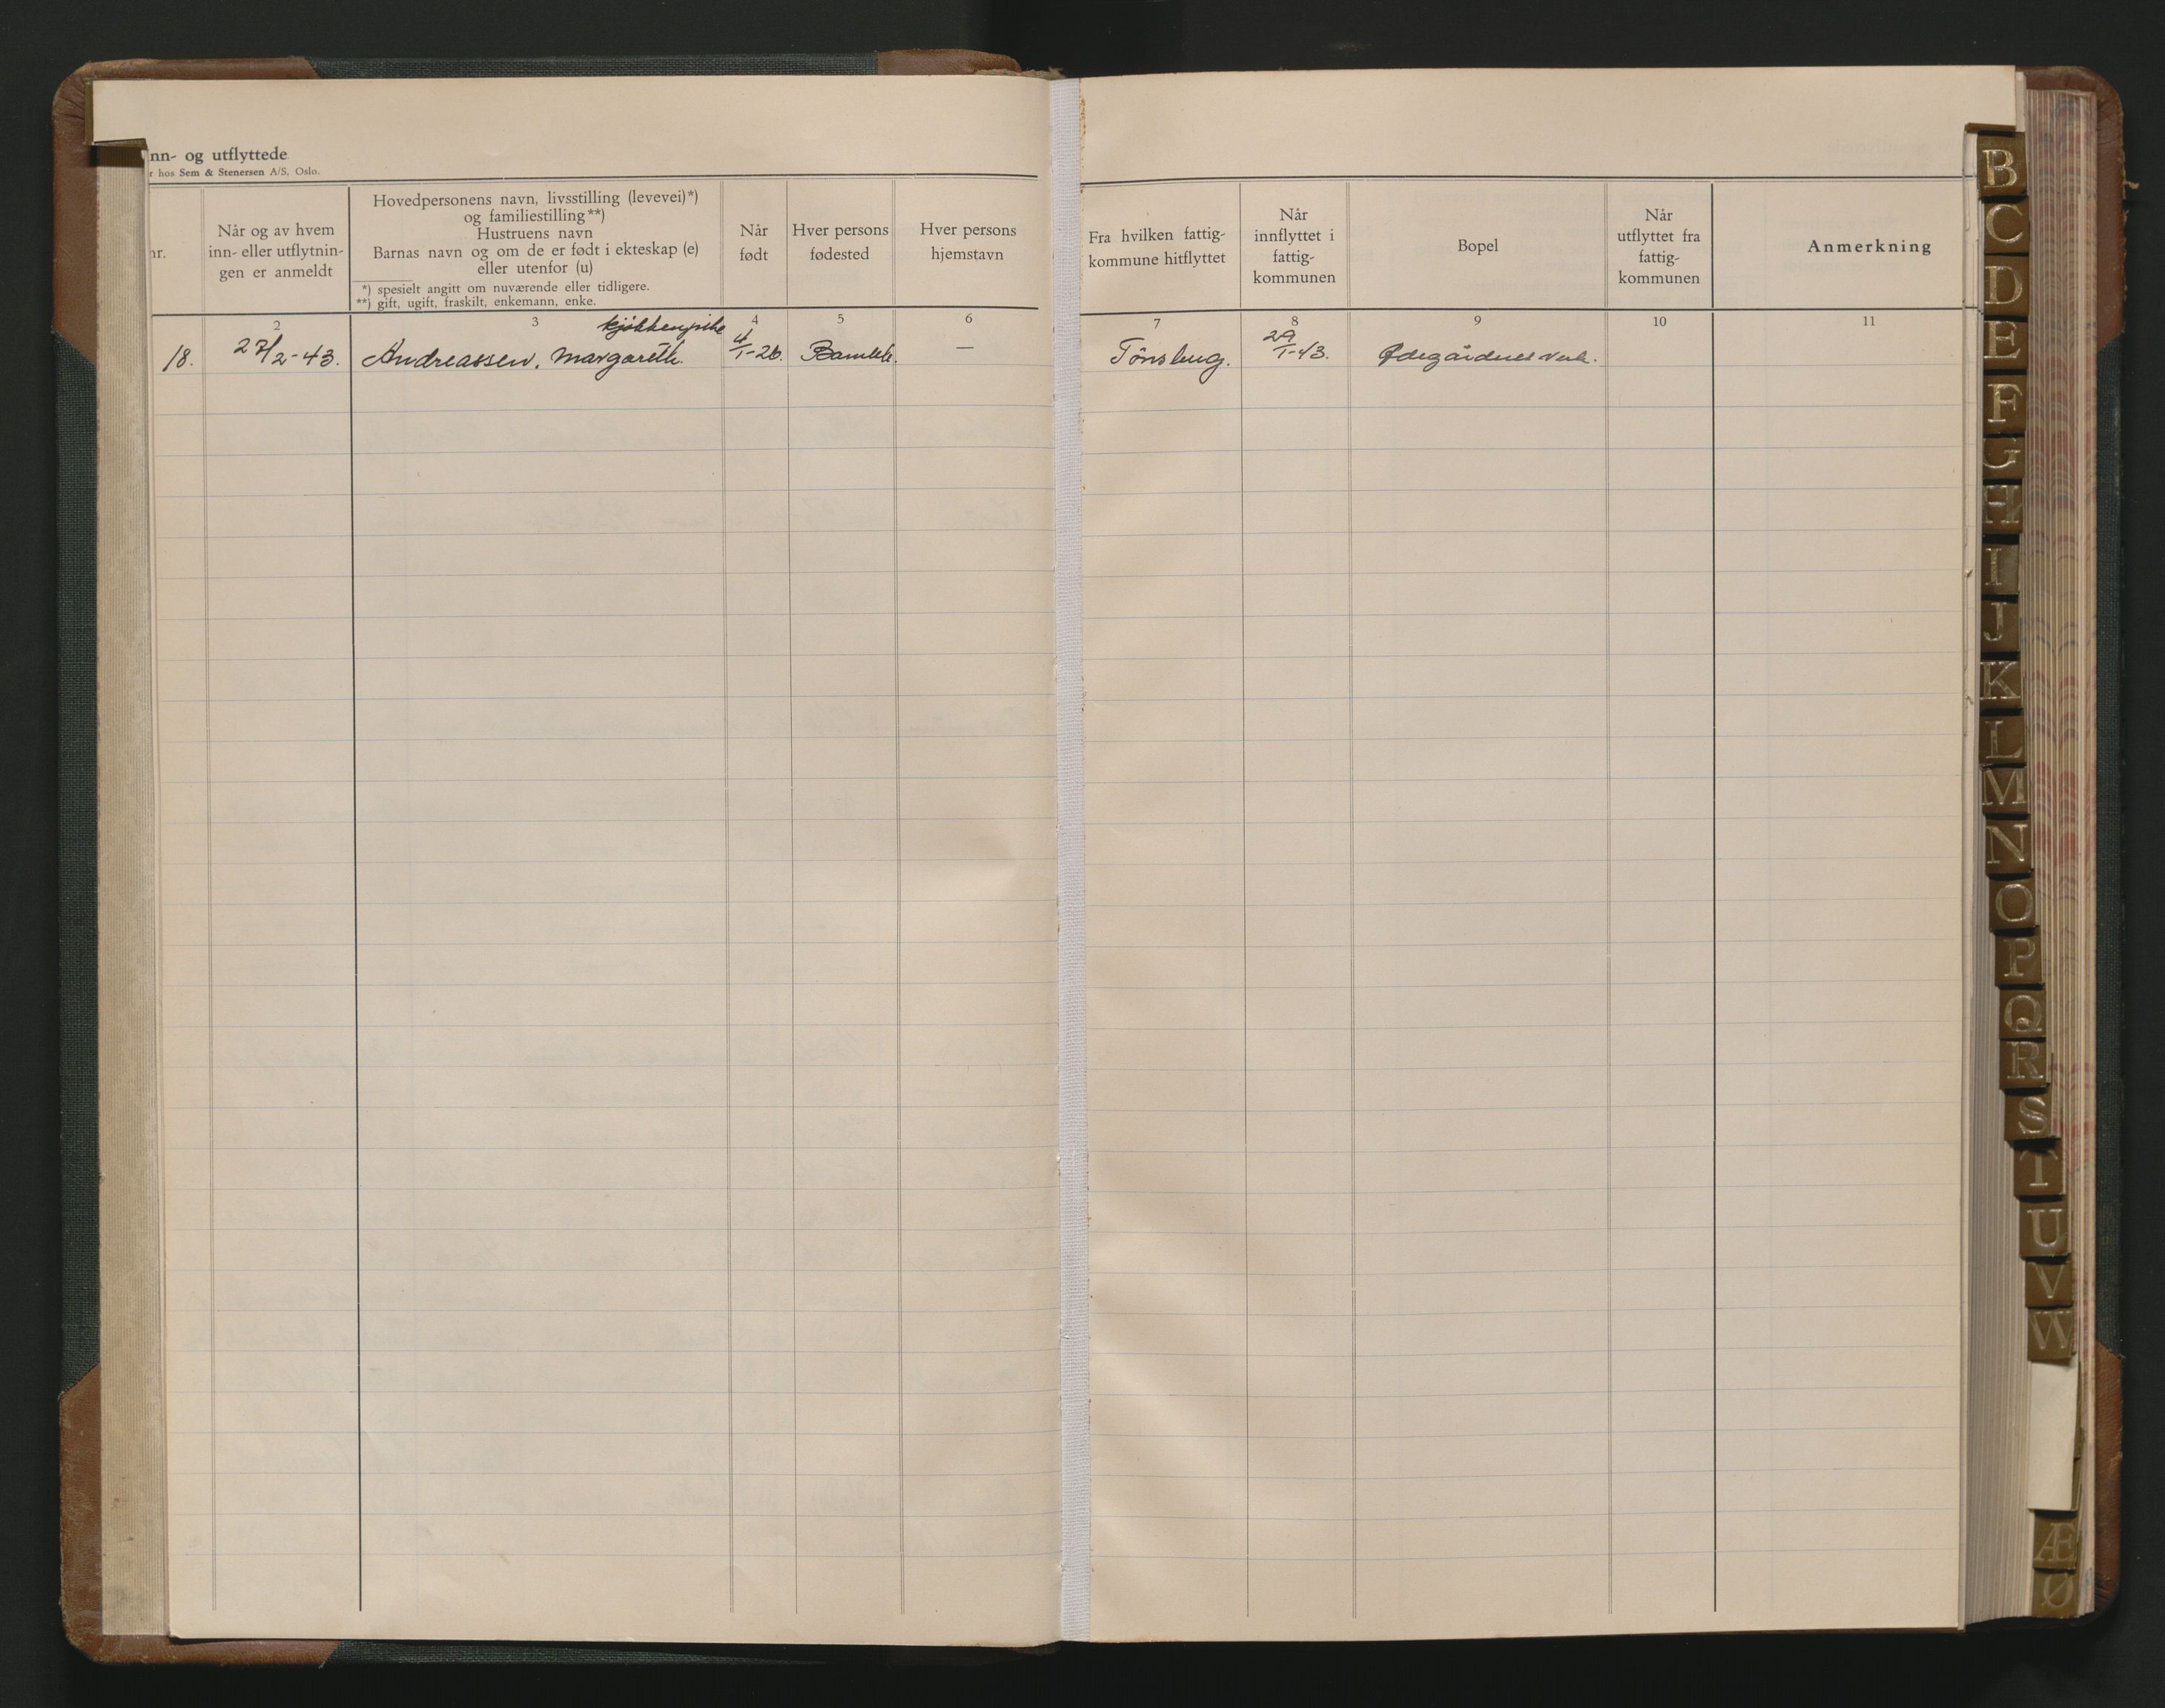 nn- og utflyttede
r hos Sem & Stenersen A/S, Oslo.
nr.
Når og av hvem
inn- eller utflytnin-
gen er anmeldt
Hovedpersonens navn, livsstilling (levevei)*)
og familiestilling**)
Hustruens navn
Barnas navn og om de er født i ekteskap (e)
eller utenfor (u)
*) spesielt angitt om nuværende eller tidligere.
**) gift, ugift, fraskilt, enkemann, enke.
Når
født
Hver persons
fødested
Hver persons
hjemstavn
Fra hvilken fattig-
kommune hitflyttet
Når
innflyttet i
fattig-
kommunen
Bopel
Når
utflyttet fra
fattig-
kommunen
Anmerkning
2 3 4 5 6 7 8 9 10 11
kjøkkenpike
18. 27/2-43. Andreassen, Margareth. 4/1-26. Bamble. — Tønsberg. 29/1-43. Ødegårdens Verk.
B
C
D
E
F
G
H
I
J
K
L
M
N
O
P
Q
R
S
T
U
V
W
Æ
Ø